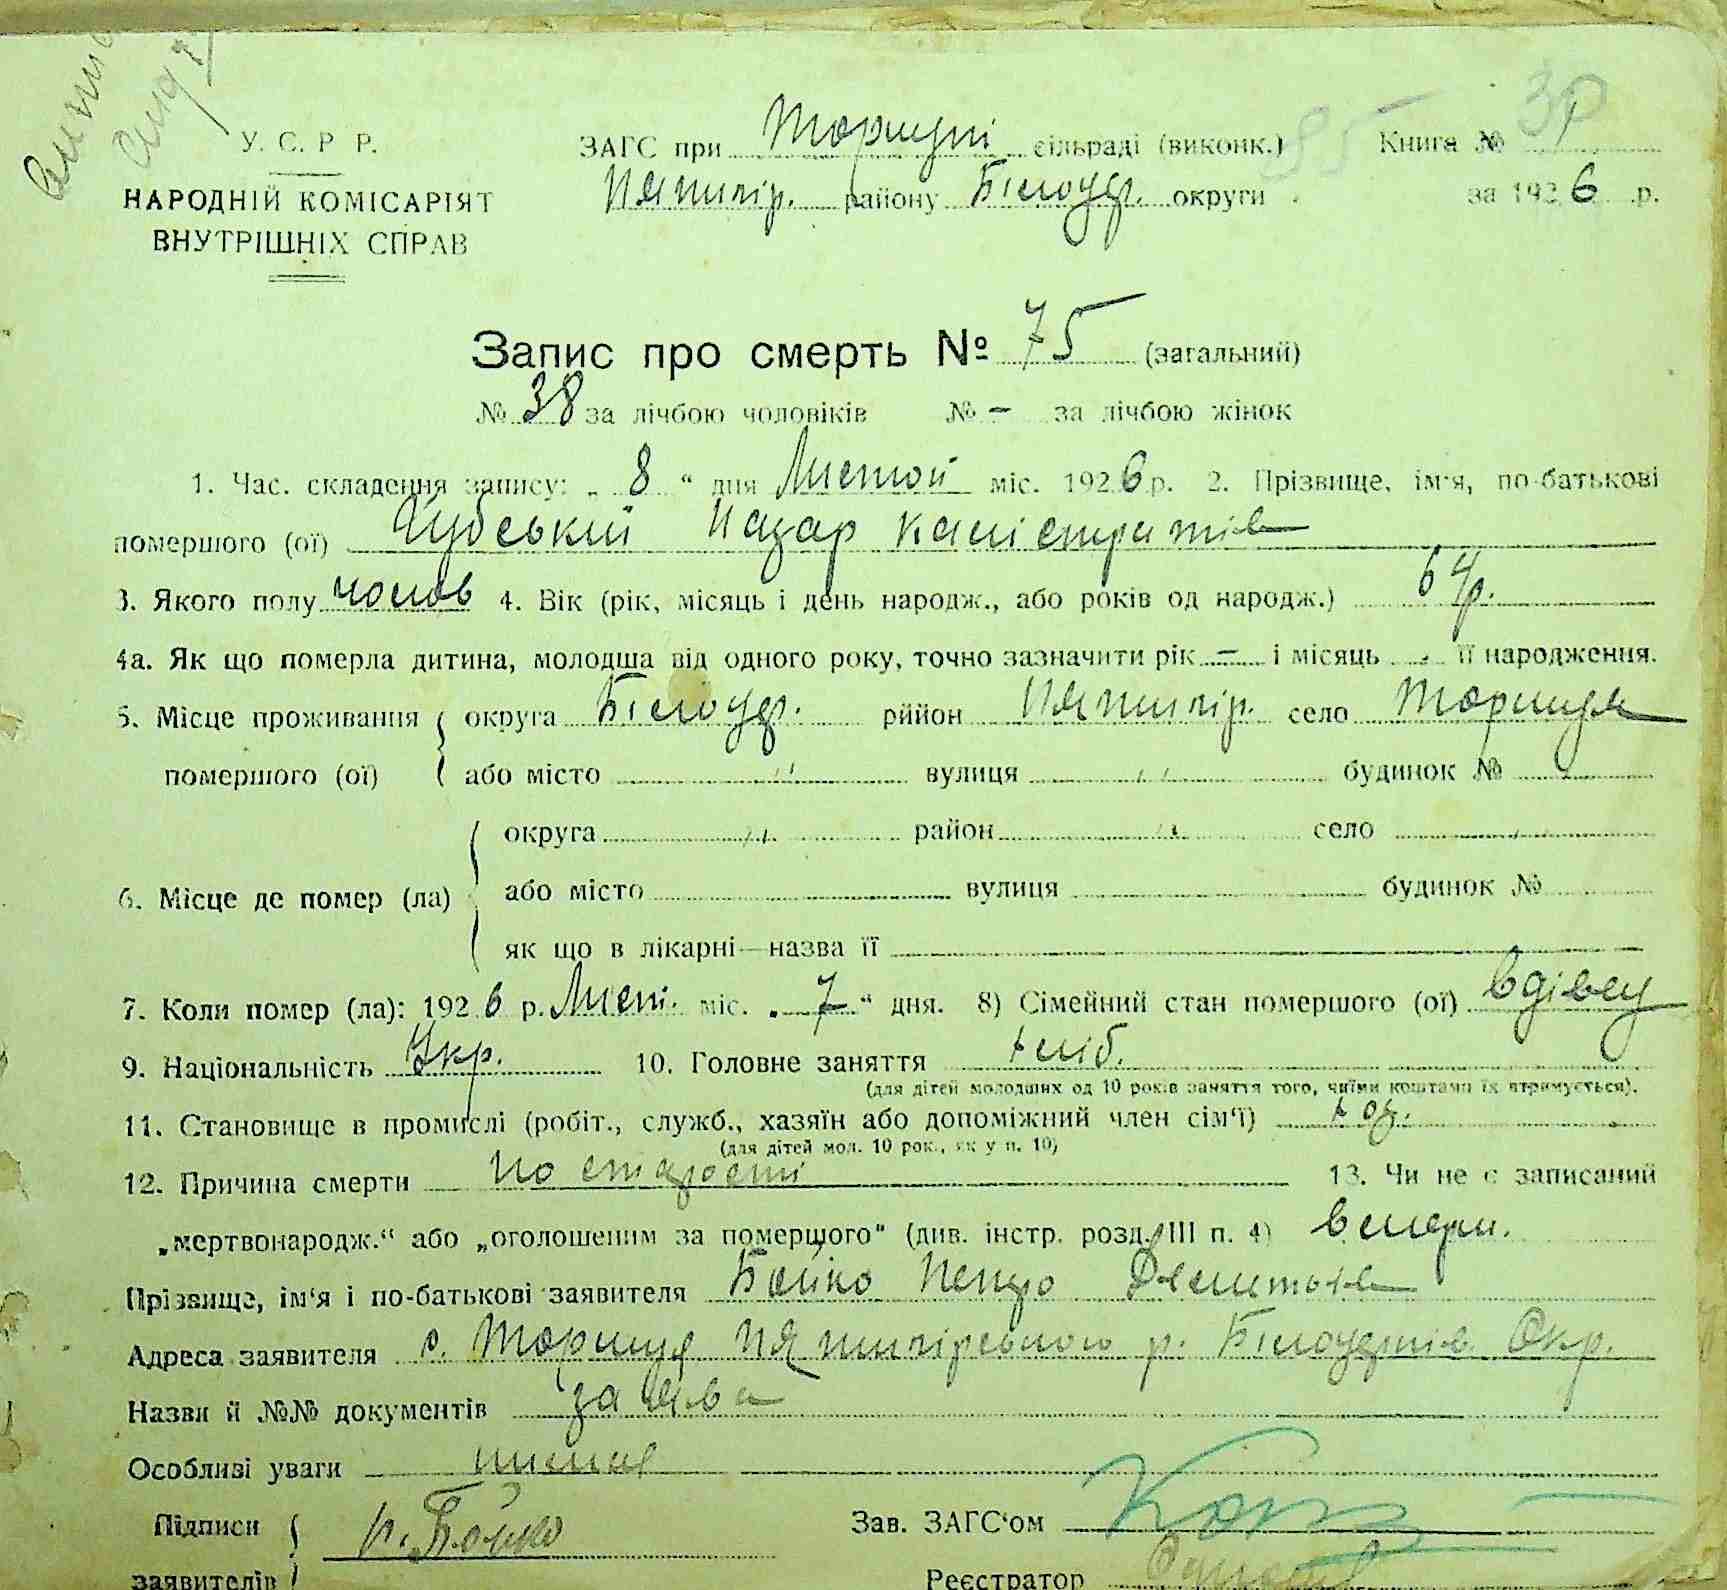 У. С. Р Р.
НАРОДНІЙ КОМІСАРІЯТ
ВНУТРІШНІХ СПРАВ
ЗАГС при Торицкі сільраді (виконк.) Книга №
Пятигір. району Білоцер. округи за 1926 р.
Запис про смерть № 75 (загальний)
№ 38 за лічбою чоловіків № – за лічбою жінок
1. Час. складення запису: „ 8 “ дня Листоп міс. 1926 р. 2. Прізвище, ім'я, по-батькові
помершого (ої) Чубський Назар Калістратів
3. Якого полу чолов 4. Вік (рік, місяць і день народж., або років од народж.) 64 р.
4а. Як що померла дитина, молодша від одного року, точно зазначити рік – і місяць її народження.
5. Місце проживання округа Білоцер. рийон Пятигір. село Ториця
помершого (ої) або місто " вулиця " будинок №
округа " район " село "
6. Місце де помер (ла) або місто вулиця будинок №
як що в лікарні—назва її
7. Коли помер (ла): 1926 р. Лист. міс. „ 7 “ дня. 8) Сімейний стан помершого (ої) вдівец
9. Національність Укр. 10. Головне заняття хліб.
(для дітей молодших од 10 років заняття того, чиїми коштами їх втримується).
11. Становище в промислі (робіт., служб., хазяїн або допоміжний член сім'ї) хоз.
(для дітей мол. 10 рок., як у п. 10)
12. Причина смерти по старости 13. Чи не є записаний
„мертвонародж.“ або „оголошеним за помершого“ (див. інстр. розд. III п. 4) вмерш.
Прізвище, ім'я і по-батькові заявителя Бойко Петро
Адреса заявителя с. Ториця Пятигірського р. Білоцерків. Окр.
Назви й №№ документів заява
Особливі уваги нима
Підписи П. Бойко Зав. ЗАГС'ом
заявителів Реєстратор